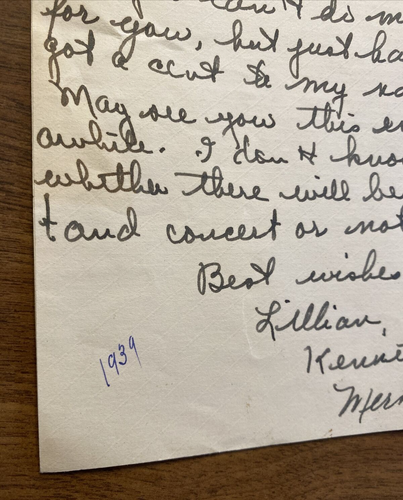 can't do m
for you, but just ha
got a cent to my na
May see you this e
awhile. I don't kno
whither there will be
tand concert or not
Best wishes
Lillian,
Kenne
Mer
1939